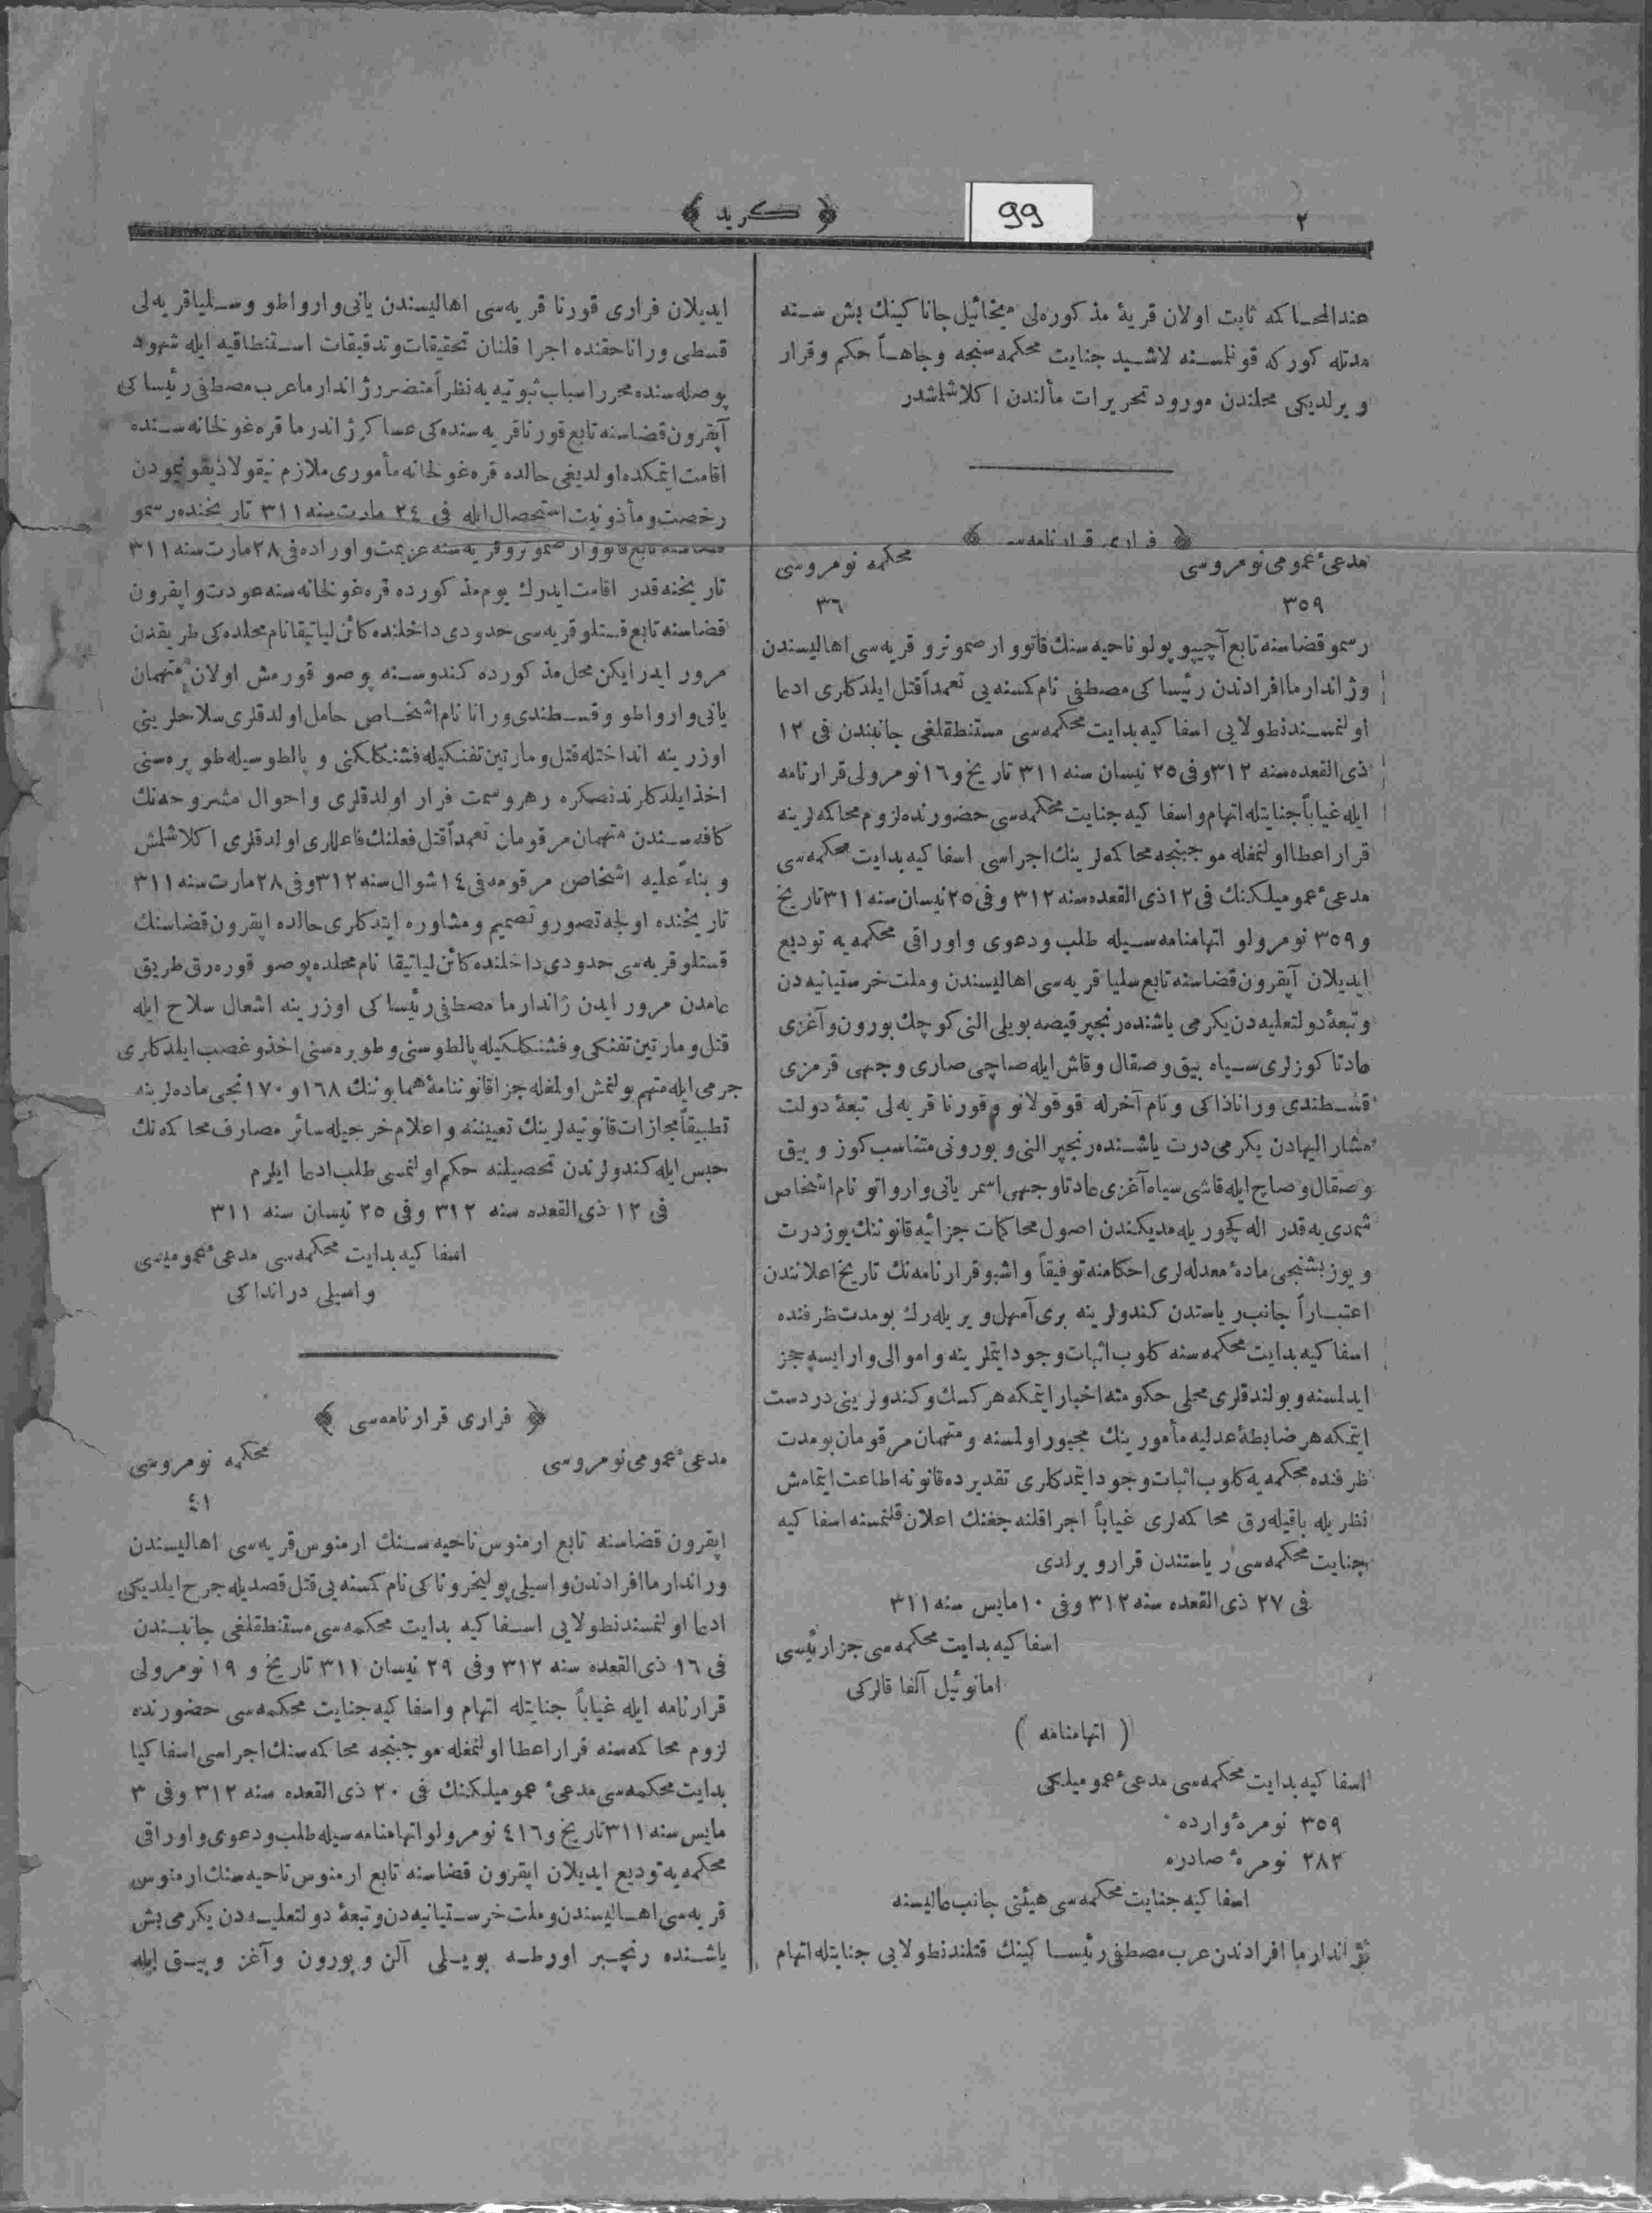 ٢
99
﴿ كريد ﴾
عندالمحاكمه ثابت اولان قريهٔ مذكوره‌لى ميخائيل جاناكينك بش سنه
مدتله كوركه قونلمسنه لاشيد جنايت محكمه‌سنجه وجاهاً حكم وقرار
ويرلديكى محلندن مورود تحريرات مألندن اكلاشلشدر
﴿ فرارى قرارنامه‌سى ﴾
مدعىٔ عمومى نومروسى محكمه نومروسى
٣٥٩ ٣٦
رسمو قضاسنه تابع آچيپوپولو ناحيه‌سنك قانووارصموترو قريه‌سى اهاليسندن
وژاندارما افرادندن رئيساكى مصطفى نام كمسنه‌يى تعمداً قتل ايلدكلرى ادعا
اولنمسندنطولايى اسفاكيه بدايت محكمه‌سى مستنطقلغى جانبندن فى ١٢
ذى القعده سنه ٣١٢ وفى ٢٥ نيسان سنه ٣١١ تاريخ و ١٦ نومرولى قرارنامه
ايله غياباً جنايتله اتهام واسفاكيه جنايت محكمه‌سى حضورنده لزوم محاكمه‌لرينه
قرار اعطا اولنمغله موجبنجه محاكمه‌لرينك اجراسى اسفاكيه بدايت محكمه‌سى
مدعىٔ عموميلكنك فى ١٢ ذى القعده سنه ٣١٢ وفى ٢٥ نيسان سنه ٣١١ تاريخ
و ٣٥٩ نومرولو اتهامنامه‌سيله طلب ودعوى واوراقى محكمه‌يه توديع
ايديلان آپقرون قضاسنه تابع سليا قريه‌سى اهاليسندن وملت خرستيانيه‌دن
وتبعهٔ دولتعليه‌دن يكرمى ياشنده رنجپر قيصه بويلى النى كوچك بورون وآغزى
عادتا كوزلرى سياه بيق وصقال وقاش ايله صاچى صارى وجهى قرمزى
قسطندى وراناذاكى ونام آخرله قوقولانو وقورنا قريه‌لى تبعهٔ دولت
مشار اليهادن يكرمى درت ياشنده رنجپر النى وبورونى متناسب كوز وبيق
وصقال وصاچ ايله قاشى سياه آغزى عادتا وجهى اسمر يانى وارواتو نام اشخاص
شمدى‌يه قدر اله كچوريله‌مديكندن اصول محاكمات جزائيه قانوننك يوز درت
ويوز بشنجى مادهٔ معدله‌لرى احكامنه توفيقاً واشبو قرارنامه‌نك تاريخ اعلانندن
اعتباراً جانب رياستدن كندولرينه برى آمهل ويريله‌رك بومدت ظرفنده
اسفاكيه بدايت محكمه‌سنه كلوب اثبات وجود ايتملرينه واموالى وارايسه حجز
ايدلمسنه وبولندقلرى محلى حكومته اخبار ايتمكه هركسك وكندولرينى دردست
ايتمكه هر ضابطهٔ عدليه مأمورينك مجبور اولمسنه ومتهمان مرقومان بومدت
ظرفنده محكمه‌يه كلوب اثبات وجود ايتمدكلرى تقديرده قانونه اطاعت ايتمامش
نظريله باقيله‌رق محاكمه‌لرى غياباً اجرا قلنه‌جغنك اعلان قلنمسنه اسفاكيه
جنايت محكمه‌سى رياستندن قرار ويرلدى
فى ٢٧ ذى القعده سنه ٣١٢ وفى ١٠ مايس سنه ٣١١
اسفاكيه بدايت محكمه‌سى جزا رئيسى
امانوئيل آلفا قالركى
( اتهامنامه )
اسفاكيه بدايت محكمه‌سى مدعىٔ عموميلكى
٣٥٩ نومرهٔ وارده
٢٨٢ نومرهٔ صادره
اسفاكيه جنايت محكمه‌سى هيئتى جانب عاليسنه
ژاندارما افرادندن عرب مصطفى رئيساكينك قتلندنطولايى جنايتله اتهام
ايديلان فرارى قورنا قريه‌سى اهاليسندن يانى وارواطو وسليا قريه‌لى
قسطى ورانا حقنده اجرا قلنان تحقيقات وتدقيقات استنطاقيه ايله شهود
پوصله‌سنده محرر اسباب ثبوتيه‌يه نظراً متضرر ژاندارما عرب مصطفى رئيساكى
آپقرون قضاسنه تابع قورنا قريه‌سنده‌كى عساكر ژاندرما قره‌غولخانه‌سنده
اقامت ايتمكده اولديغى حالده قره‌غولخانه مأمورى ملازم نيقولا ذيقونيمودن
رخصت ومأذونيت استحصال ايله فى ٢٤ مارت سنه ٣١١ تاريخنده رسمو
قضاسنه تابع قانووارصموترو قريه‌سنه عزيمت واوراده فى ٢٨ مارت سنه ٣١١
تاريخنه قدر اقامت ايدرك يوم مذكورده قره‌غولخانه‌سنه عودت واپقرون
قضاسنه تابع قستلو قريه‌سى حدودى داخلنده كائن لياتيقا نام محلده‌كى طريقدن
مرور ايدرايكن محل مذكورده كندوسنه پوصو قورمش اولان متهمان
يانى وارواطو وقسطندى ورانا نام اشخاص حامل اولدقلرى سلاحلرينى
اوزرينه انداختله قتل ومارتين تفنكيله فشنكلكنى و پالطوسيله طوپره‌سنى
اخذ ايلدكلرندنصكره رهروسمت فرار اولدقلرى واحوال مشروحه‌نك
كافه‌سندن متهمان مرقومان تعمداً قتل فعلنك فاعللرى اولدقلرى اكلاشلمش
وبناءً عليه اشخاص مرقومه فى ١٤ شوال سنه ٣١٢ وفى ٢٨ مارت سنه ٣١١
تاريخنده اولجه تصور وتصميم ومشاوره ايتدكلرى حالده اپقرون قضاسنك
قستلو قريه‌سى حدودى داخلنده كائن لياتيقا نام محلده پوصو قوره‌رق طريق
عامدن مرور ايدن ژاندارما مصطفى رئيساكى اوزرينه اشعال سلاح ايله
قتل ومارتين تفنكى وفشنكلكيله پالطوسنى وطوپره‌سنى اخذ وغصب ايلدكلرى
جرمى ايله متهم بولنمش اولمغله جزا قانوننامهٔ همايوننك ١٦٨ و ١٧٠ نجى ماده‌لرينه
تطبيقاً مجازات قانونيه‌لرينك تعييننه واعلام خرجيله سائر مصارف محاكمه‌نك
حبس ايله كندولرندن تحصيلنه حكم اولنمسى طلب ادعا ايلرم
فى ١٢ ذى القعده سنه ٣١٢ وفى ٢٥ نيسان سنه ٣١١
اسفاكيه بدايت محكمه‌سى مدعىٔ عموميسى
واسيلى درانداكى
﴿ فرارى قرارنامه‌سى ﴾
مدعىٔ عمومى نومروسى محكمه نومروسى
٤١
اپقرون قضاسنه تابع ارمنوس ناحيه‌سنك ارمنوس قريه‌سى اهاليسندن
وژاندارما افرادندن واسيلى پوليخروناكى نام كمسنه‌يى قتل قصديله جرح ايلديكى
ادعا اولنمسندنطولايى اسفاكيه بدايت محكمه‌سى مستنطقلغى جانبندن
فى ١٦ ذى القعده سنه ٣١٢ وفى ٢٩ نيسان ٣١١ تاريخ و ١٩ نومرولى
قرارنامه ايله غياباً جنايتله اتهام واسفاكيه جنايت محكمه‌سى حضورنده
لزوم محاكمه‌سنه قرار اعطا اولنمغله موجبنجه محاكمه‌سنك اجراسى اسفاكيا
بدايت محكمه‌سى مدعىٔ عموميلكنك فى ٢٠ ذى القعده سنه ٣١٢ وفى ٣
مايس سنه ٣١١ تاريخ و ٤١٦ نومرولو اتهامنامه‌سيله طلب ودعوى واوراقى
محكمه‌يه توديع ايديلان اپقرون قضاسنه تابع ارمنوس ناحيه‌سنك ارمنوس
قريه‌سى اهاليسندن وملت خرستيانيه‌دن وتبعهٔ دولتعليه‌دن يكرمى بش
ياشنده رنجبر اورطه بويلى آلن وبورون وآغز وبيق ايله